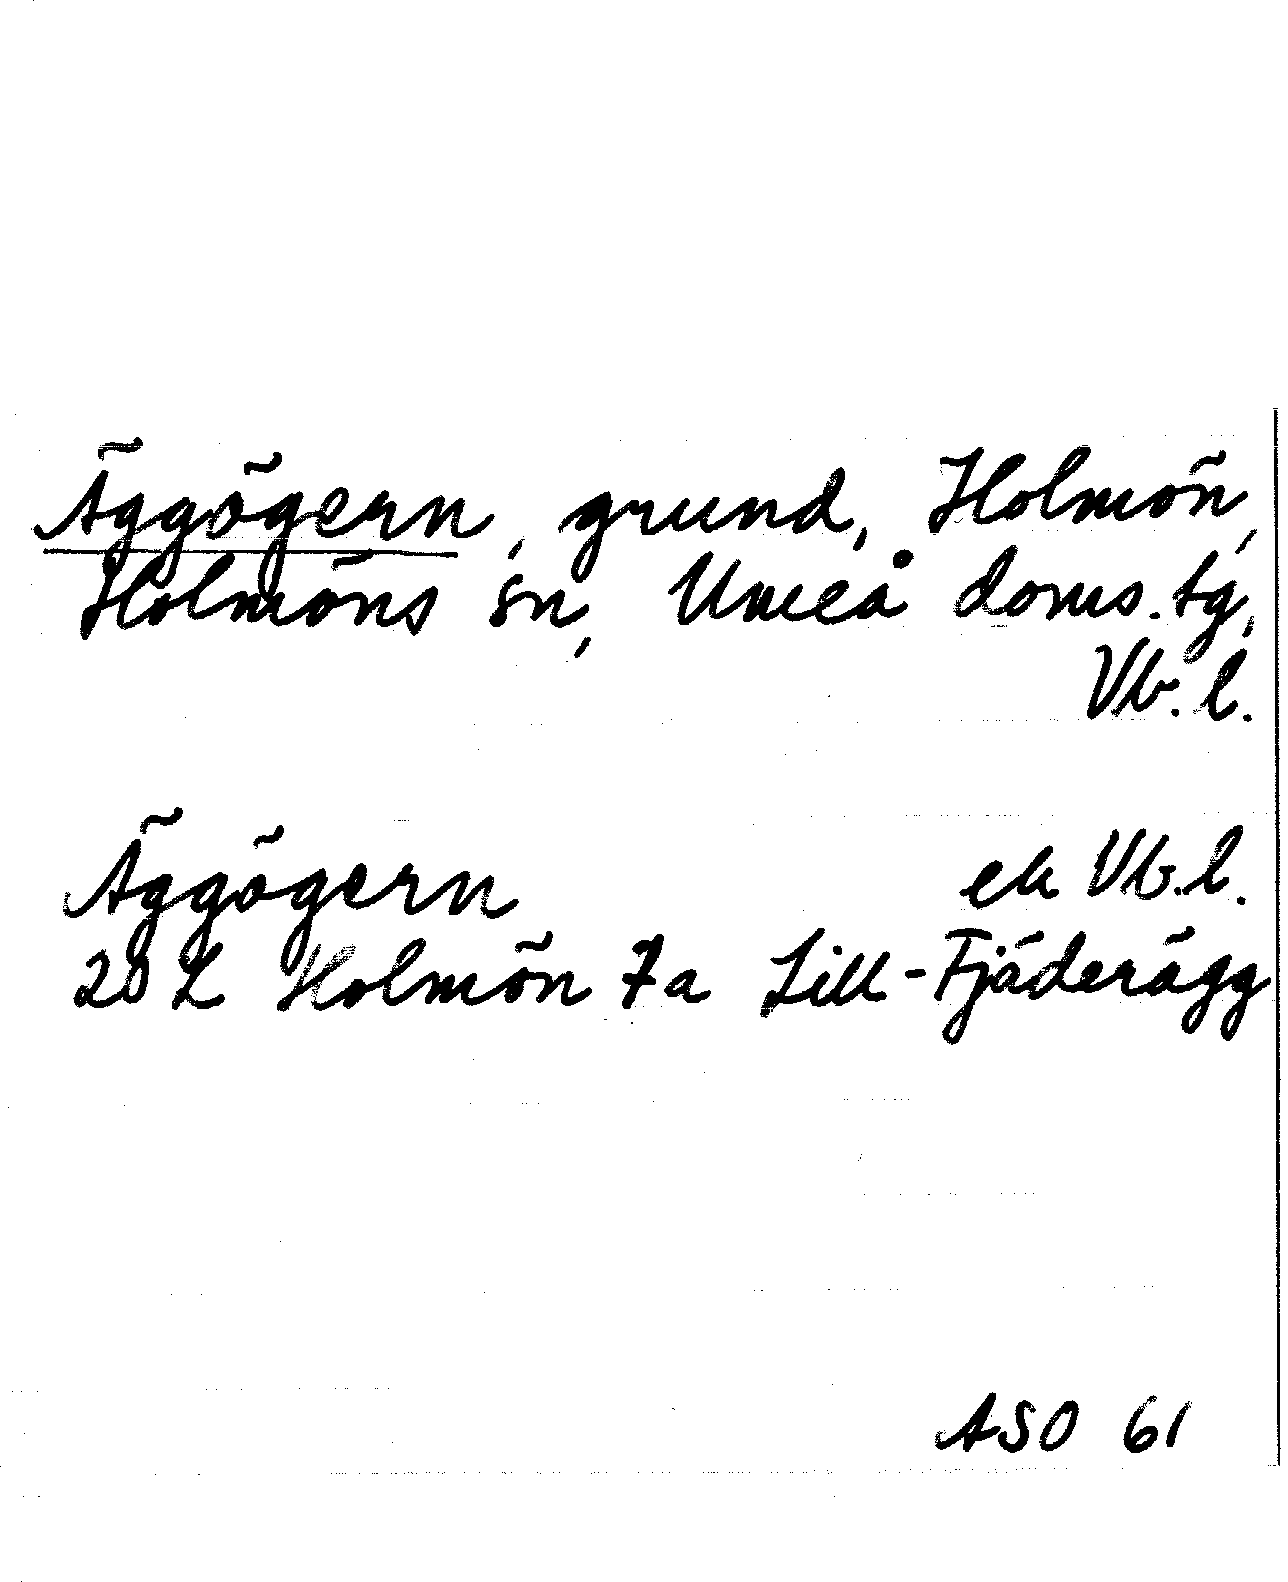 Äggögern, grund, Holmön,
Holmöns sn, Umeå doms.tg,
Vb. l.
Äggögern ek Vb.l.
20 L Holmön 7a Lill-Fjäderägg
ASO 61